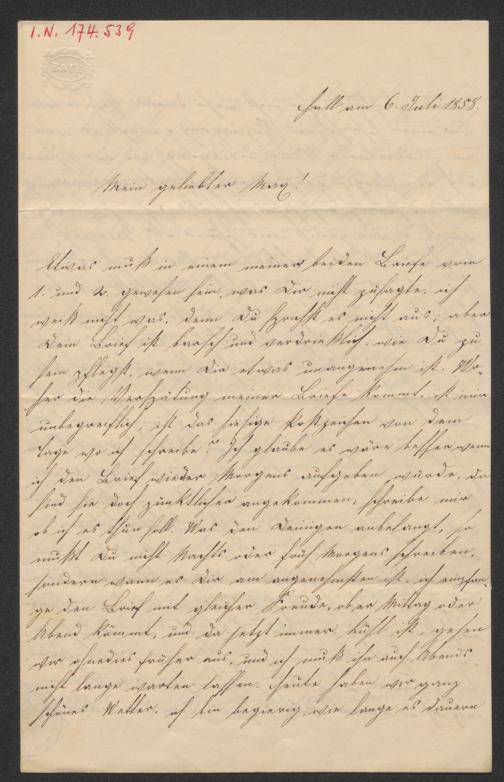 I.N. 174.539
BATH
Hall am 6. Juli 1858.
Mein geliebter Max!
Etwas muß in einem meiner beiden Briefe vom
1. und 2. gewesen sein, was Dir nicht zusagte, ich
weiß nicht was, denn Du sprachst es nicht aus, aber
Dein Brief ist barsch und verdrießlich, wie Du zu
sein pflegst, wenn Dir etwas unangenehm ist. Wo-
her die Verspätung meiner Briefe kommt, ist mir
unbegreiflich, ist das hiesige Postzeichen von dem
Tage wo ich schreibe? Ich glaube es wäre besser wenn
ich den Brief wieder Morgens aufgeben würde, da
sind sie doch pünktlicher angekommen, schreibe mir
ob ich es thun soll. Was den Deinigen anbelangt, so
mußt Du nicht Nachts oder früh Morgens schreiben,
sondern wann es Dir am angenehmsten ist, ich empfan-
ge den Brief mit gleicher Freude, ob er Mittag oder
Abend kömmt, und da jetzt immer kühl ist, gehen
wir ohnedies früher aus, und ich muß ihn auch Abends
nicht lange warten lassen. Heute haben wir ganz
schönes Wetter, ich bin begierig, wie lange es dauern